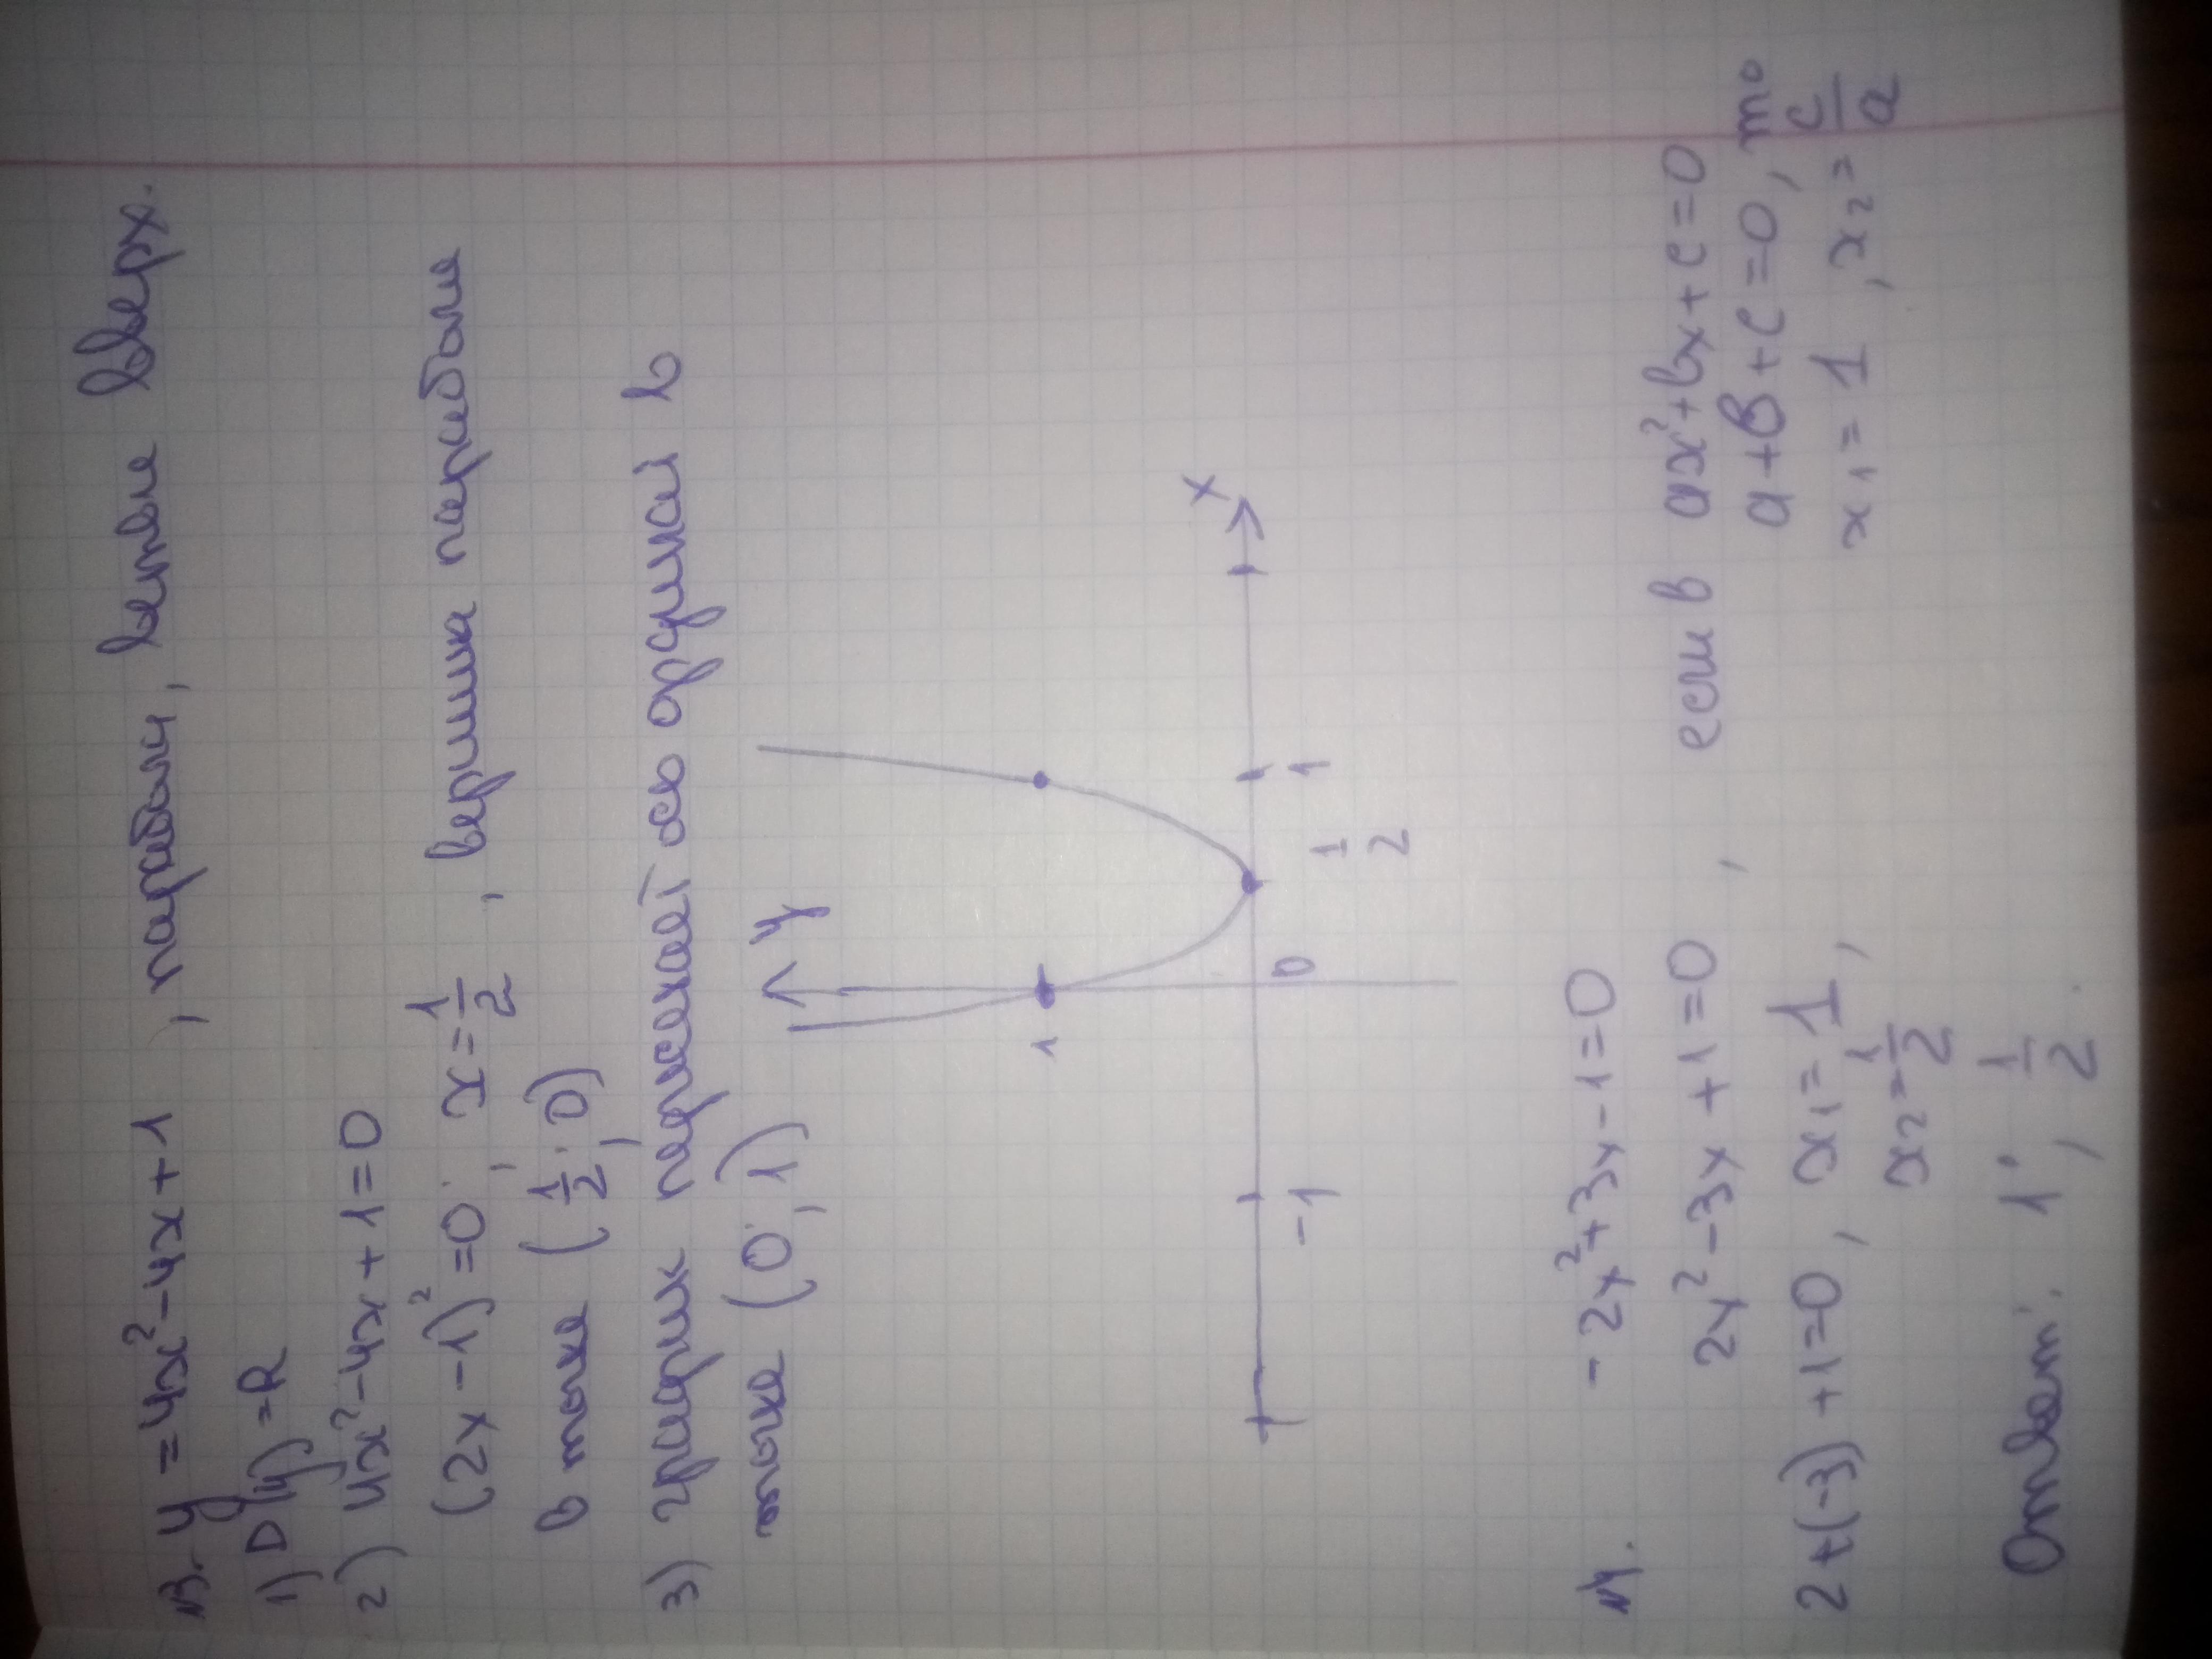 №3. y = 4x² - 4x + 1, парабола, ветви вверх.
1) D(y) = R
2) 4x² - 4x + 1 = 0
(2x - 1)² = 0; x = 1/2, вершина параболы
в точке (1/2; 0)
3) график пересекает ось ординат в
точке (0; 1)
y
1
x
-1 0 1/2 1
№4. -2x² + 3x - 1 = 0
2x² - 3x + 1 = 0, если в ax² + bx + c = 0
a + b + c = 0, то
2 + (-3) + 1 = 0, x₁ = 1, x₁ = 1, x₂ = c/a
x₂ = 1/2
Ответ: 1; 1/2.